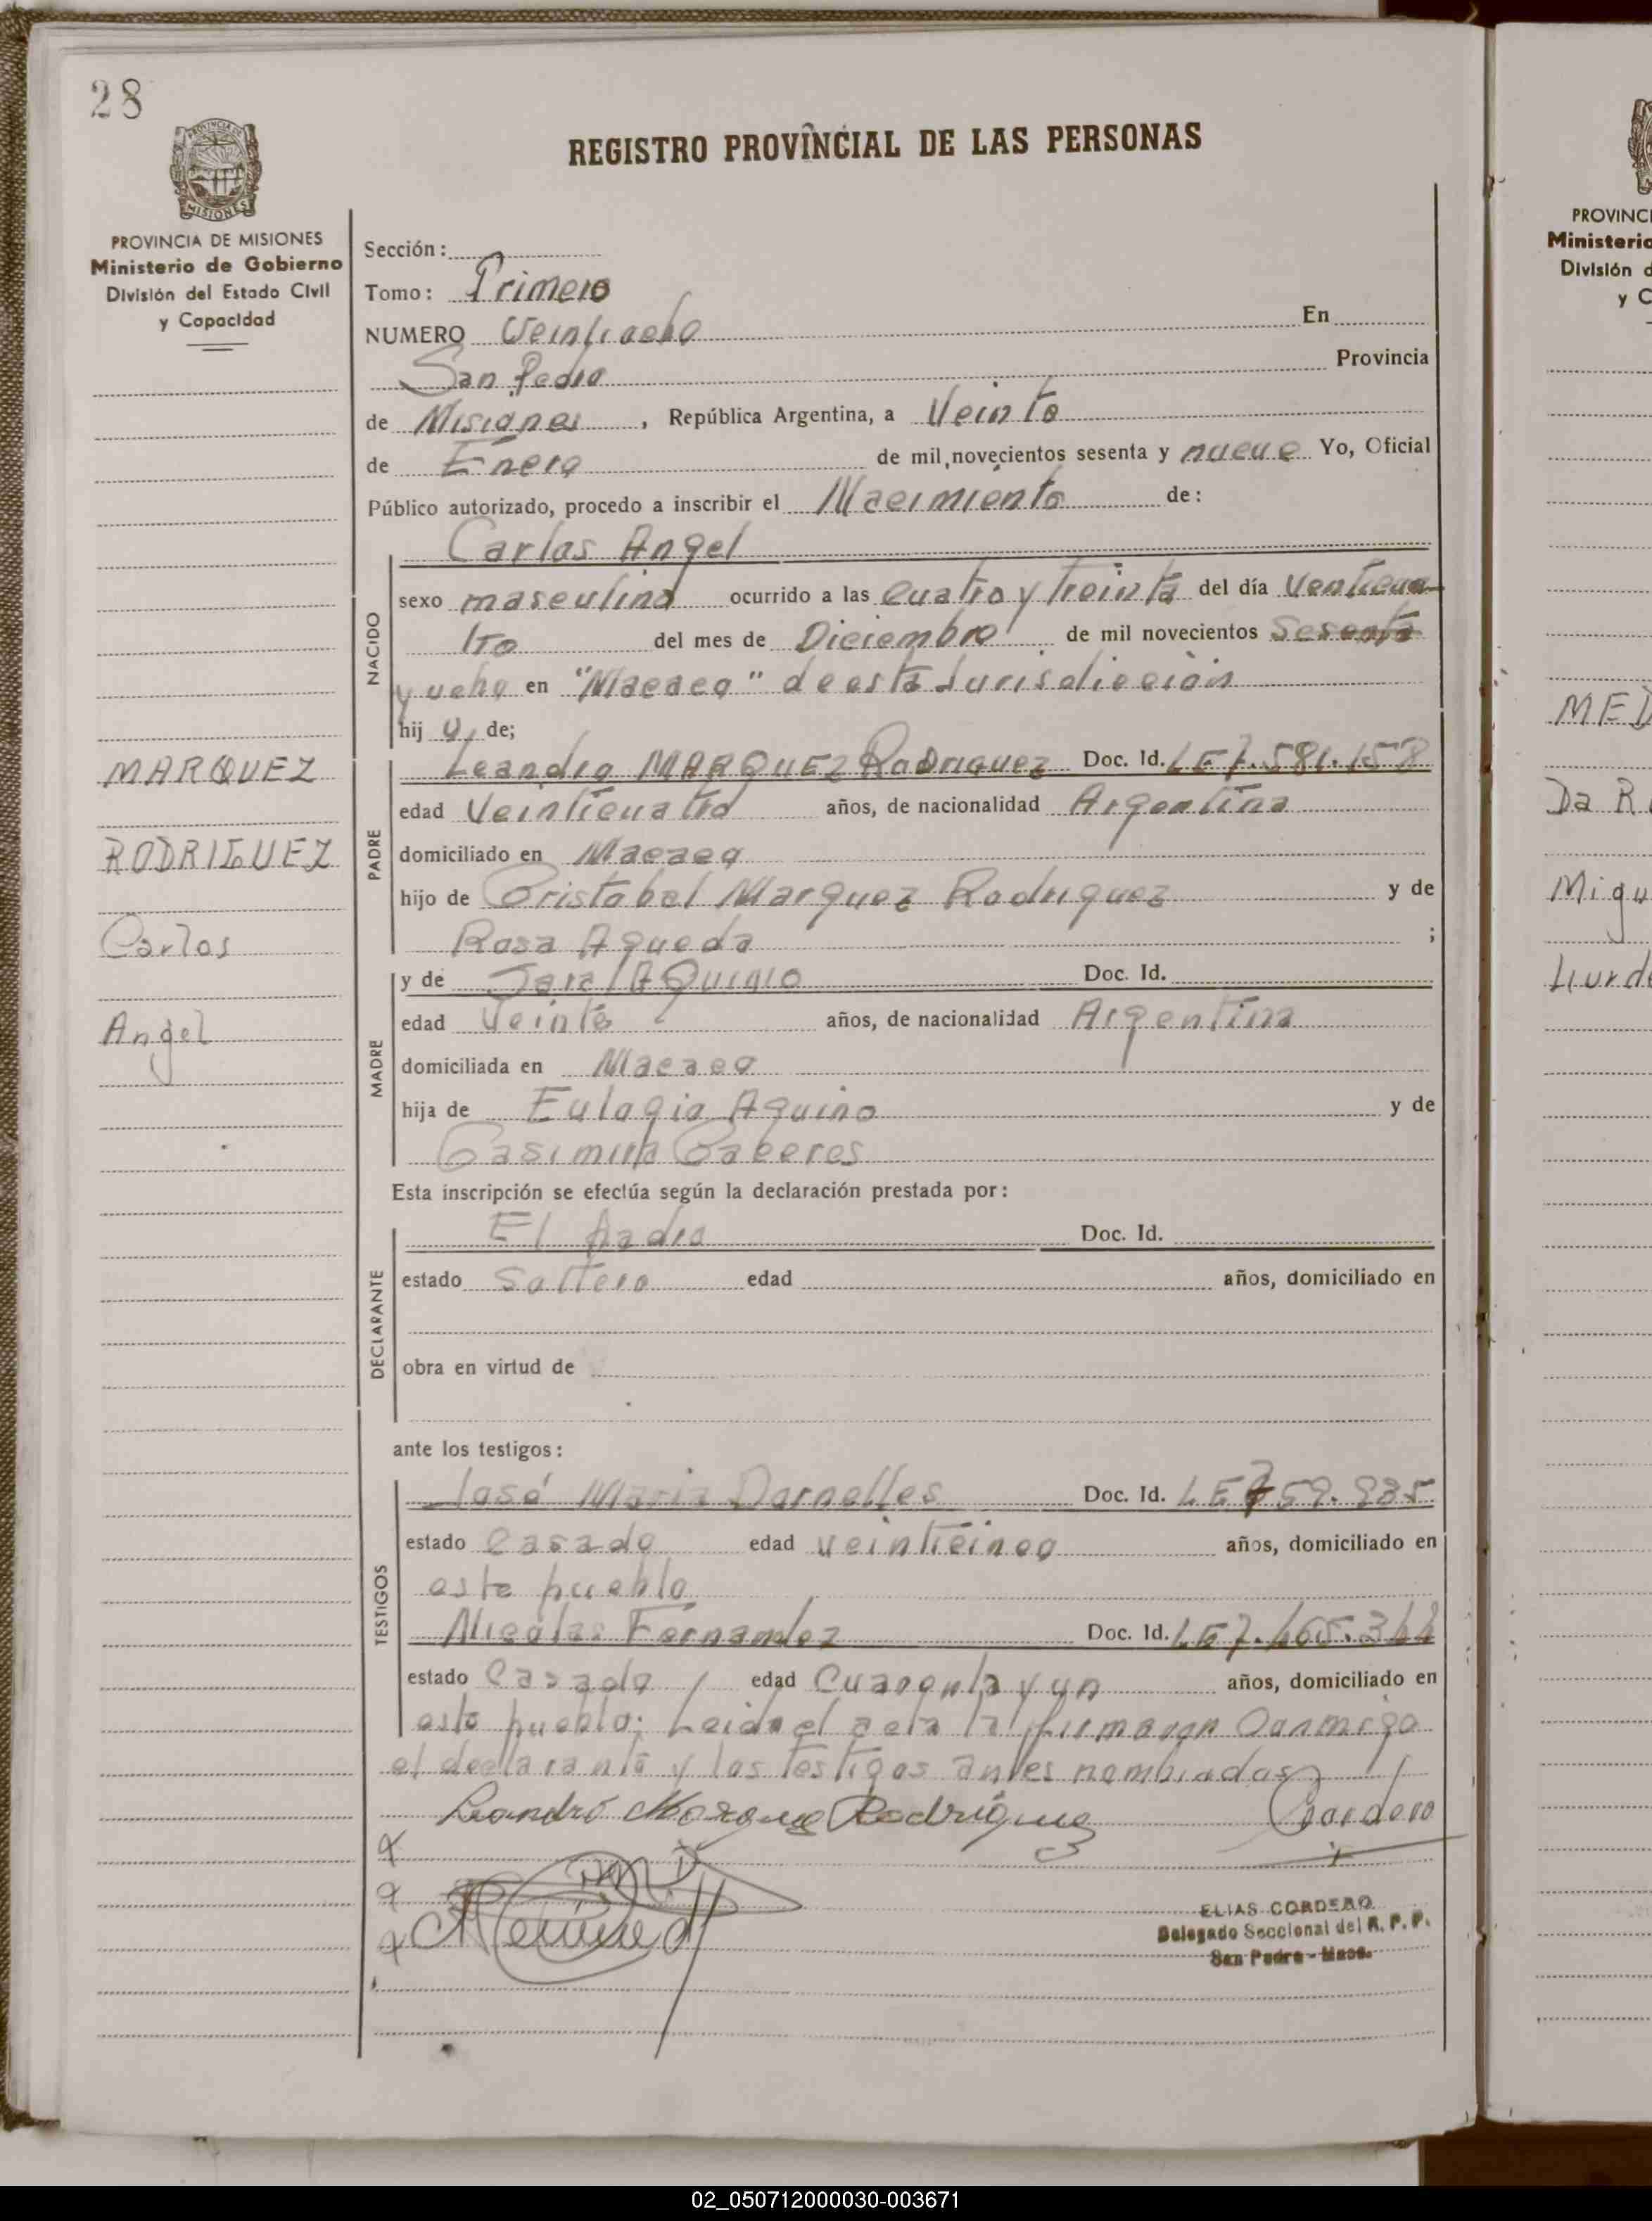 28
REGISTRO PROVINCIAL DE LAS PERSONAS
PROVINCIA DE
MISIONES
PROVINCIA DE MISIONES
Ministerio de Gobierno
División del Estado Civil
y Capacidad
MARQUEZ
RODRIGUEZ
Carlos
Angel
Sección:
Tomo: Primero
NUMERO Veintiocho En
San Pedro Provincia
de Misiones, República Argentina, a Veinte
de Enero de mil novecientos sesenta y nueve Yo, Oficial
Público autorizado, procedo a inscribir el Nacimiento de:
Carlos Angel
NACIDO
sexo masculino ocurrido a las Cuatro y treinta del día Venticua-
tro del mes de Diciembre de mil novecientos Sesenta
y ocho en "Macaco" de esta Jurisdicción
hij o, de;
PADRE
Leandro MARQUEZ Rodriguez Doc. Id. LE 7.581.158
edad Veinticuatro años, de nacionalidad Argentina
domiciliado en Macaco
hijo de Cristobal Marquez Rodriguez y de
Rosa Agueda ;
MADRE
y de Sara AQUINO Doc. Id.
edad Veinte años, de nacionalidad Argentina
domiciliada en Macaco
hija de Eulogio Aquino y de
Casimira Caceres
Esta inscripción se efectúa según la declaración prestada por:
DECLARANTE
El Padre Doc. Id.
estado Soltero edad años, domiciliado en
obra en virtud de
ante los testigos:
TESTIGOS
José Maria Dornelles Doc. Id. LE
estado Casado edad veinticinco años, domiciliado en
este pueblo
Nicolas Fernandez Doc. Id. LE 7.465.344
estado Casado edad Cuarenta y un años, domiciliado en
este pueblo; Leida el acta la firmaron Conmigo
el declarante y los testigos antes nombrados
Leandro Marquez Rodriguez Cordero
ELIAS CORDERO
Delegado Seccional del R. P. P.
San Pedro - Mnes.
PROVINCI
Ministerio
División d
y C
MED
Da R
Migu
Lurd
02_050712000030-003671